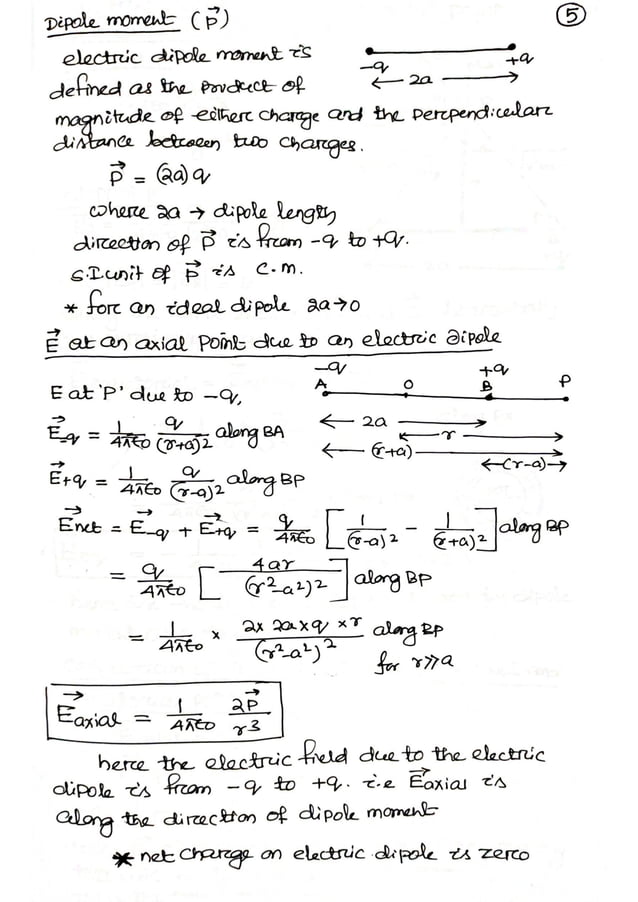 Dipole moment (P⃗)
5
electric dipole moment is
-q +q
defined as the product of
← 2a →
magnitude of either charge and the perpendicular
distance between two charges.
P⃗ = (2a)q
where 2a → dipole length
direction of P⃗ is from -q to +q.
S.I unit of P⃗ is C.m.
* for an ideal dipole 2a→0
E⃗ at an axial point due to an electric dipole
-q +q
A O B P
E at 'P' due to -q,
← 2a →
E⃗-q = 1/4πε0 q/(r+a)2 along BA
← r →
← (r+a) →
←(r-a)→
E⃗+q = 1/4πε0 q/(r-a)2 along BP
E⃗net = E⃗-q + E⃗+q = q/4πε0 [1/(r-a)2 - 1/(r+a)2] along BP
= q/4πε0 [4ar/(r2-a2)2] along BP
= 1/4πε0 × 2×2a×q×r/(r2-a2)2 along BP
for r>>a
E⃗axial = 1/4πε0 2P⃗/r3
here the electric field due to the electric
dipole is from -q to +q. i.e E⃗axial is
along the direction of dipole moment
* net charge on electric dipole is zero